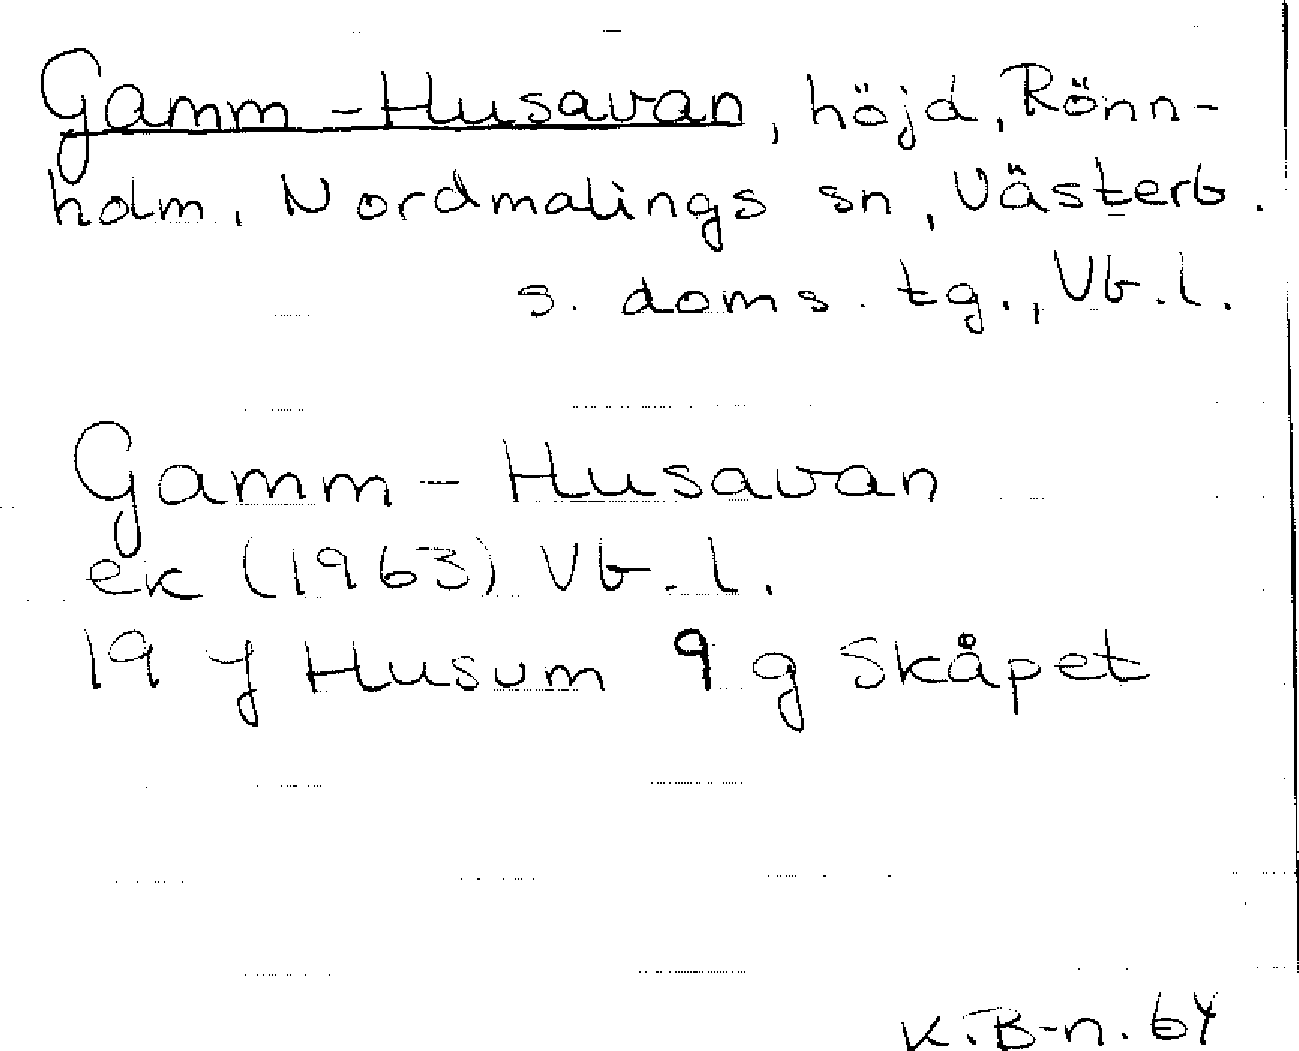 Gamm-Husavan, höjd, Rönn-
holm, Nordmalings sn, Västerb.
s. doms. tg., Vb. l.
Gamm-Husavan
ek (1963) Vb. l.
19 J Husum 9 g Skåpet
K. B-n. 64